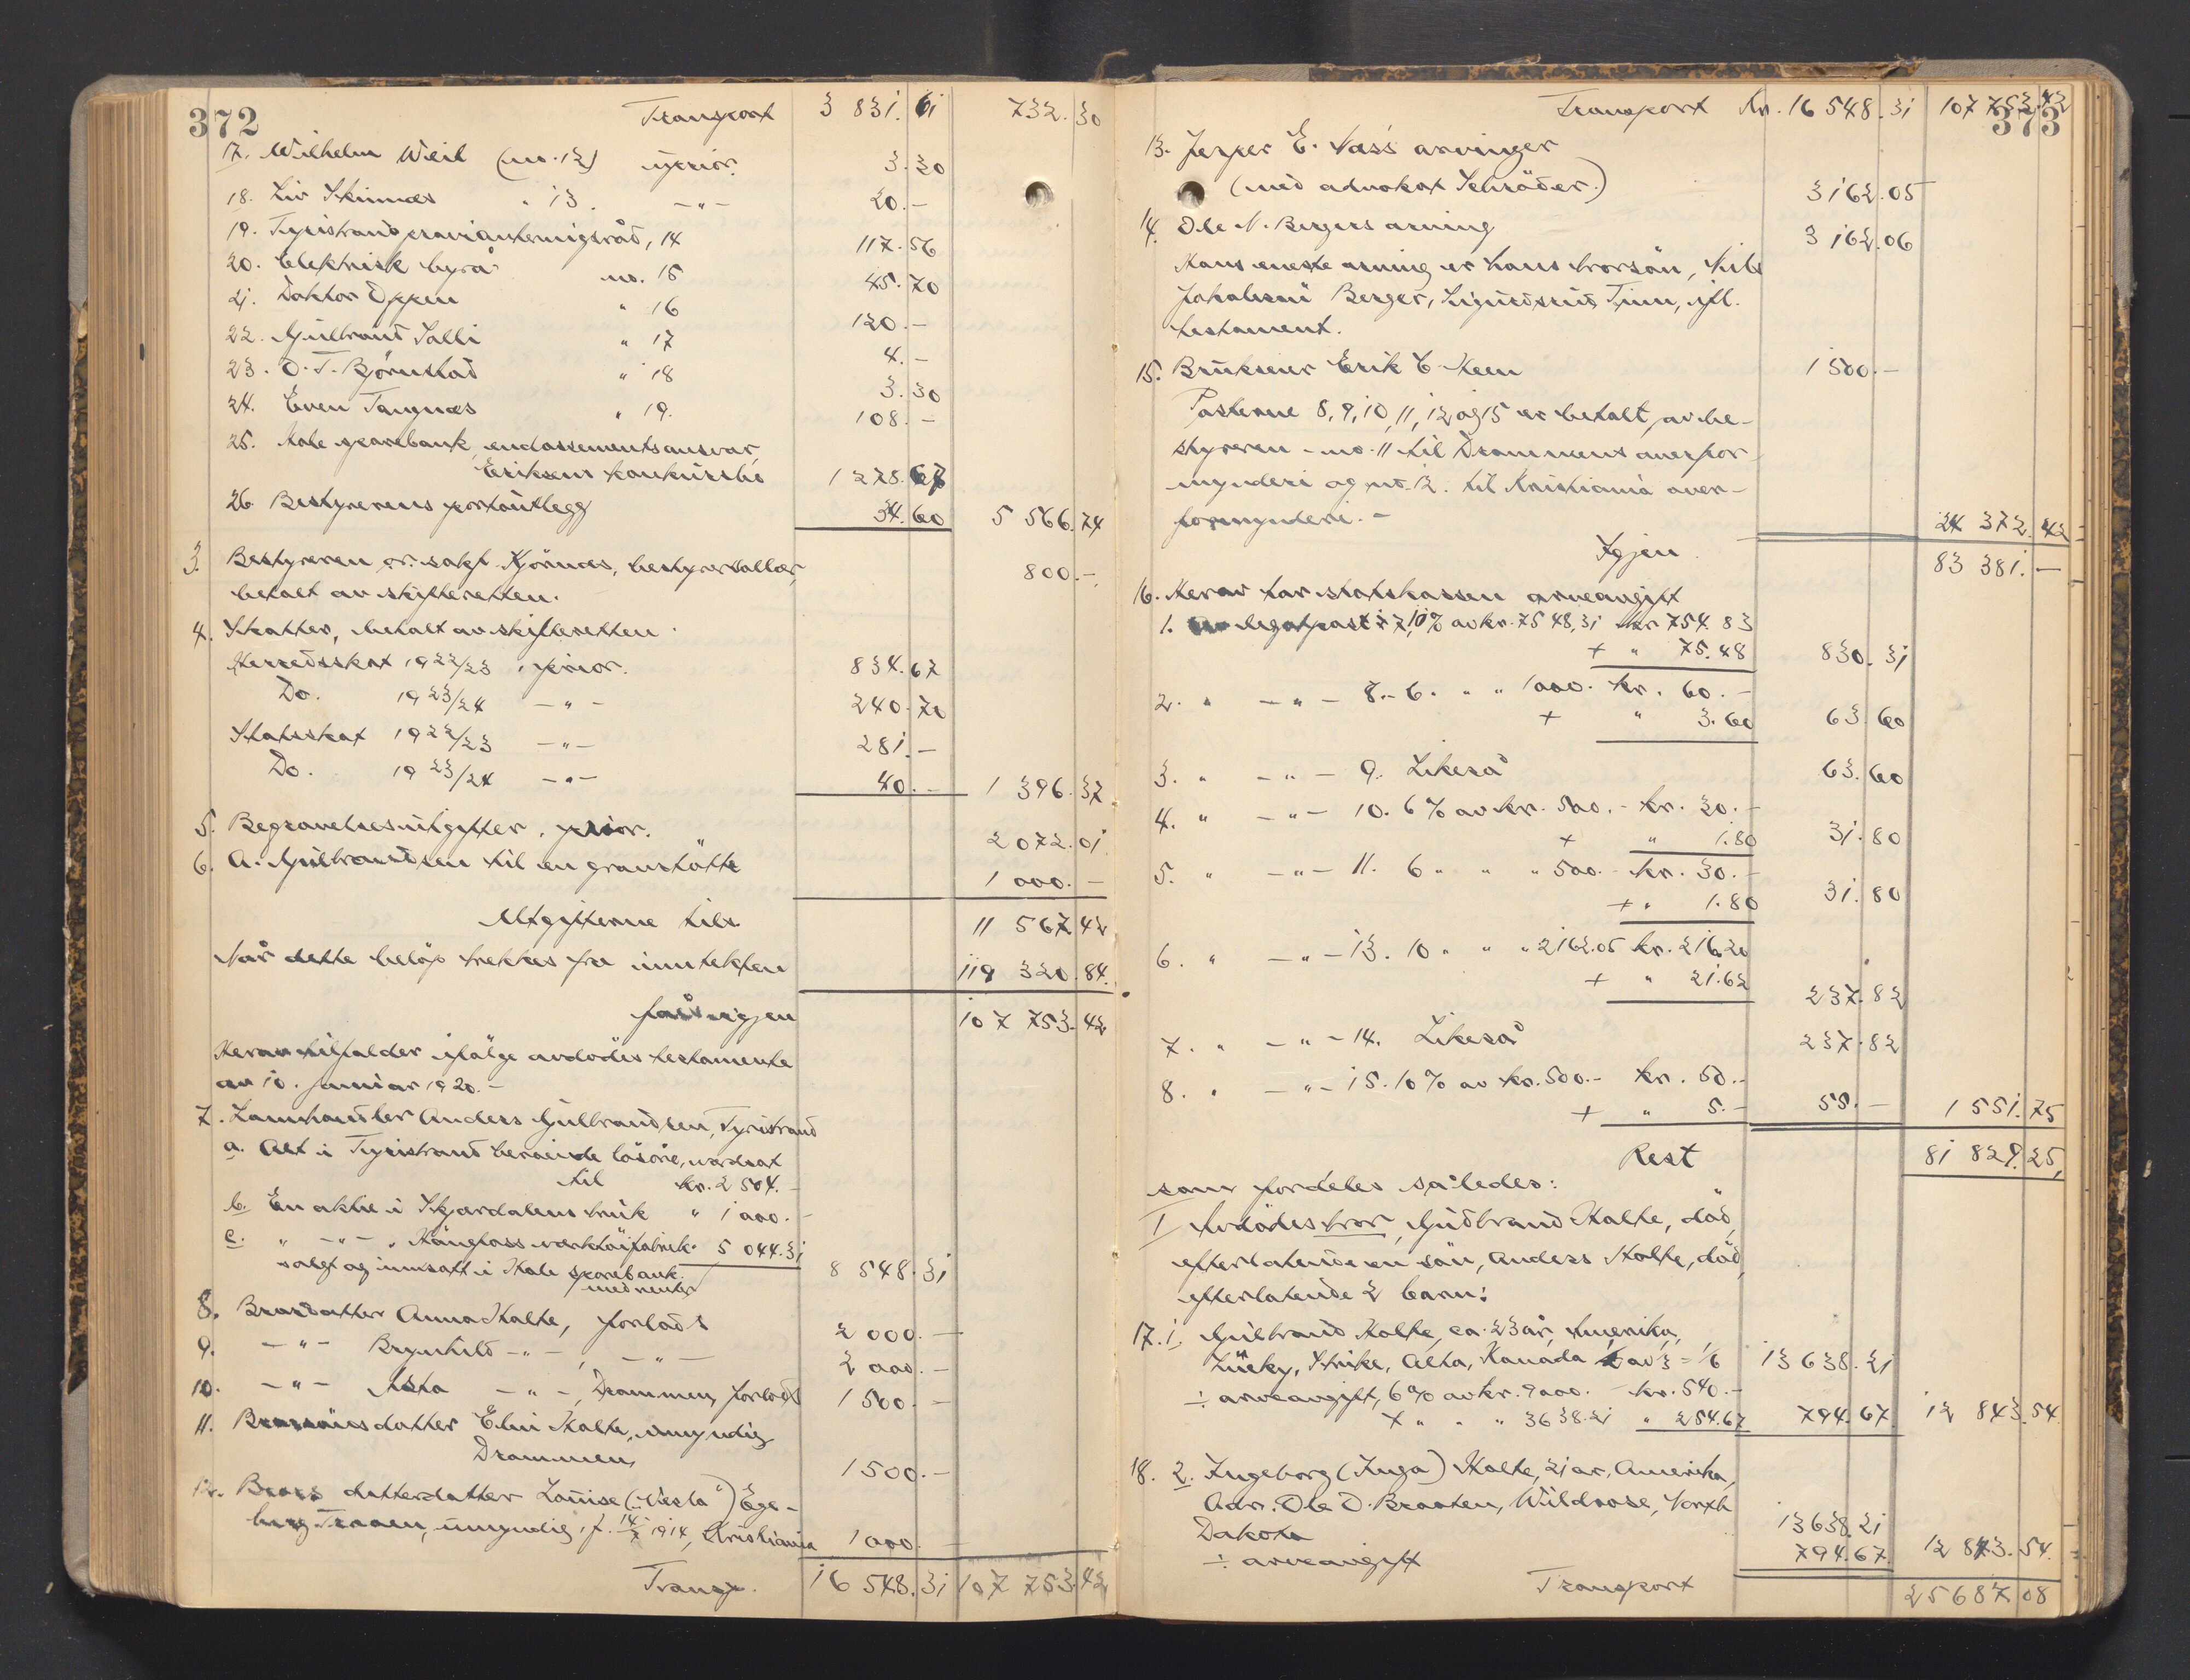 372
Transport 3 831.61 732.30
17. Wilhelm Weil (no. 12) uprior. 3.30
18. Liv Skinnes " 13. -"- 20.-
19. Tyristrand provianteringsråd, 14 117.56
20. Elektrisk byrå no. 15 45.70
21. Doktor Oppen " 16 120.-
22. Gulbrand Salli " 17 4.-
23. O. T. Björnstad " 18 3.30
24. Even Tangnæs " 19. 108.-
25. Hole sparebank, endossementsansvar,
Eriksens konkursbo 1 278.67
26 Bestyrerens portoutlegg 34.60 5 566.74
3. Bestyreren or. sakf. Kjörnæs, bestyrersallær, 800.-
betalt av skifteretten.
4. Skatter, betalt av skifteretten.
Herredsskat 1922/23, prior. 834.67
Do. 1923/24 -"- 240.70
Statsskat 1922/23 -"- 281.-
Do. 1923/24 -"- 40.- 1 396.37
5. Begravelsesutgifter, prior. 2 072.01
6. A. Gulbrandsen til en gravstötte 1 000.-
Utgifterne tils. 11 567.42
Når dette belöp trekkes fra inntekten 119 320.84.
fåes igjen 107 753.42
Herav tilfalder ifölge avdödes testamente
av 10. januar 1920.-
7. Landhandler Anders Gulbrandsen, Tyristrand
a. Alt i Tyristrand beroende lösöre, verdsat
til kr. 2 504.-
b. En aktie i Skjærdalens bruk " 1 000.-
c. " -"- " Kongfoss værktöifabrik. 5 044.31
solgt og innsatt i Hole sparebank. 8 548.31
med renter
8. Brordatter Anna Halte, forlods 2 000.-
9. -"- Brynhild -"-, -"- 2 000.-
10. -"- Asta -"-, Drammen, forlods 1 500.-
11. Brorsönsdatter Elin Halte, umyndig
Drammen, 1 500.-
12. Brors datterdatter Louise ("Vesla") Ege-
berg Traaen, umyndig, f. 14/7 1914, Kristiania 1 000.-
Transp. 16 548.31 107 753.42
373
Transport Kr. 16 548.31 107 753.42
13. Jesper E. Næss' arvinger
(med advokat Schröder.) 3 162.05
14. Ole N. Bergers arving 3 162.06
Hans eneste arving er hans brorsön, Nils
Berger, Tinn, ifl.
testament.
15. Brukseier Erik E. Steen 1 500.-
Posterne 8, 9, 10, 11, 12 og 15 er betalt av be-
styreren - no. 11 til Drammens overfor-
mynderi og no. 12. til Kristiania over-
formynderi.- 24 372.42
Igjen. 83 381.-
16. Herav tar statskassen arveavgift
1. legatpost 7, 10% av kr. 7548,31 kr 754.83
+ " 75.48 830.31
2. " -"- 8.- 6. " " 1000. kr. 60.-
+ " 3.60 63.60
3. " -"- 9. Likeså 63.60
4. " -"- 10. 6% av kr. 500.- kr. 30.-
+ " 1.80 31.80
5. " -"- 11. 6 " " " 500.- kr. 30.-
+ " 1.80 31.80
6. " -"- 13. 10 " " " 2162.05 kr. 216.20
+ " 21.62 237.82
7. " -"- 14. Likeså 237.82
8. " -"- 15. 10% av kr. 500.- kr. 50.-
+ " 5.- 55.- 1 551.75
Rest 81 829.25,
som fordeles således:
I Avdödes bror, Gudbrand Halte, död,
efterlatende en sön, Anders Halte, död,
efterlatende 2 barn:
17. 1. Gulbrand Halte, ca. 23 år, Amerika,
Lücky, Strike, Alta, Kanada av 3 = 1/6 13 638.21
÷ arveavgift, 6% av kr. 9000. - kr. 540.-
+ " " " 3638.21 " 254.67 794.67. 12 843.54.
18. 2. Ingeborg (Inga) Halte, 21 år, Amerika,
Adr. Ole O. Braaten, Wildrose, North
Dakota 13638.21
÷ arveavgift 794.67. 12 843.54.
Transport 25687.08